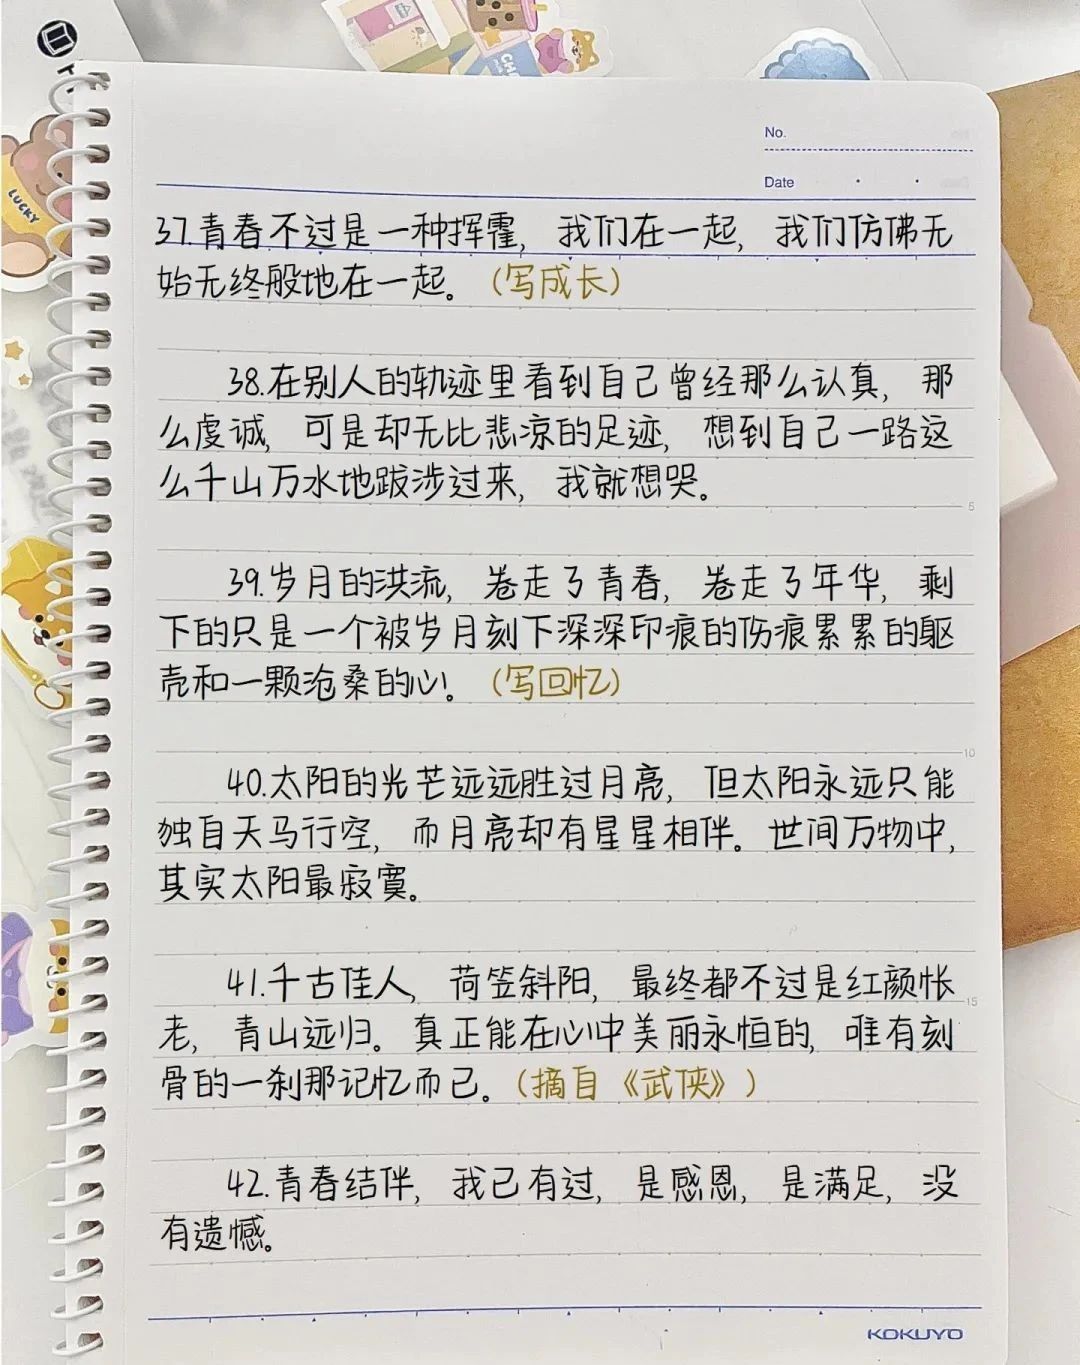 No.
Date
37.青春不过是一种挥霍，我们在一起，我们仿佛无
始无终般地在一起。（写成长）
38.在别人的轨迹里看到自己曾经那么认真，那
么虔诚，可是却无比悲凉的足迹，想到自己一路这
么千山万水地跋涉过来，我就想哭。
5
39.岁月的洪流，卷走了青春，卷走了年华，剩
下的只是一个被岁月刻下深深印痕的伤痕累累的躯
壳和一颗沧桑的心。（写回忆）
10
40.太阳的光芒远远胜过月亮，但太阳永远只能
独自天马行空，而月亮却有星星相伴。世间万物中，
其实太阳最寂寞。
41.千古佳人，荷笠斜阳，最终都不过是红颜怅
15
老，青山远归。真正能在心中美丽永恒的，唯有刻
骨的一刹那记忆而已。（摘自《武侠》）
42.青春结伴，我已有过，是感恩，是满足，没
有遗憾。
KOKUYO
LUCKY